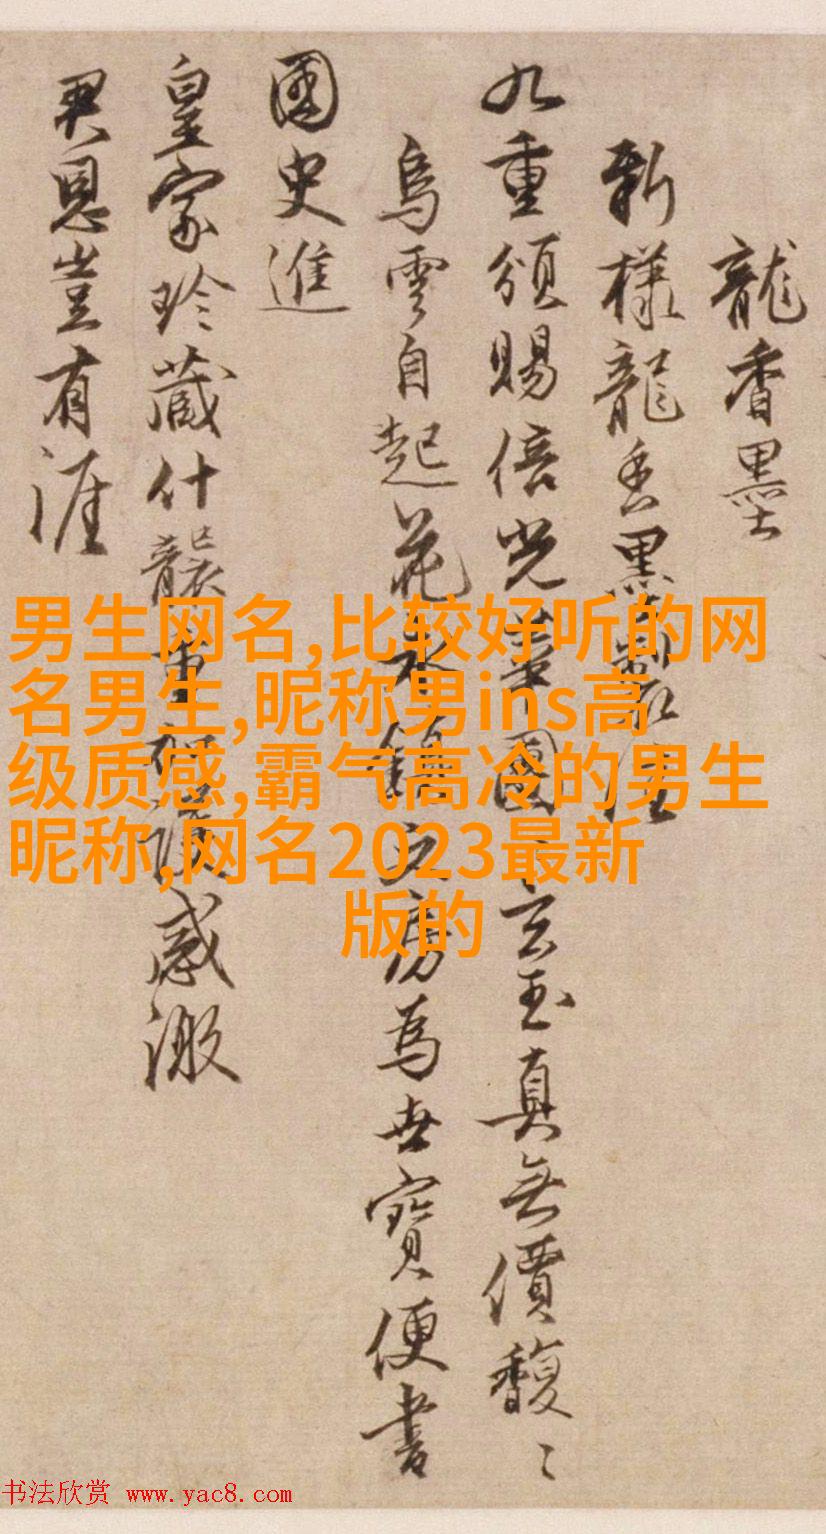 龍香墨
新樣龍香墨製
九重頒賜倍光華團玄玉真無價馥〻
烏雲自起花永鎮文房為世寶便書
國史進
皇家珍藏什襲重 感激
君恩豈有涯
男生网名,比较好听的网
名男生,昵称男ins高
级质感,霸气高冷的男生
昵称,网名2023最新
版的
书法欣赏 www.yac8.com